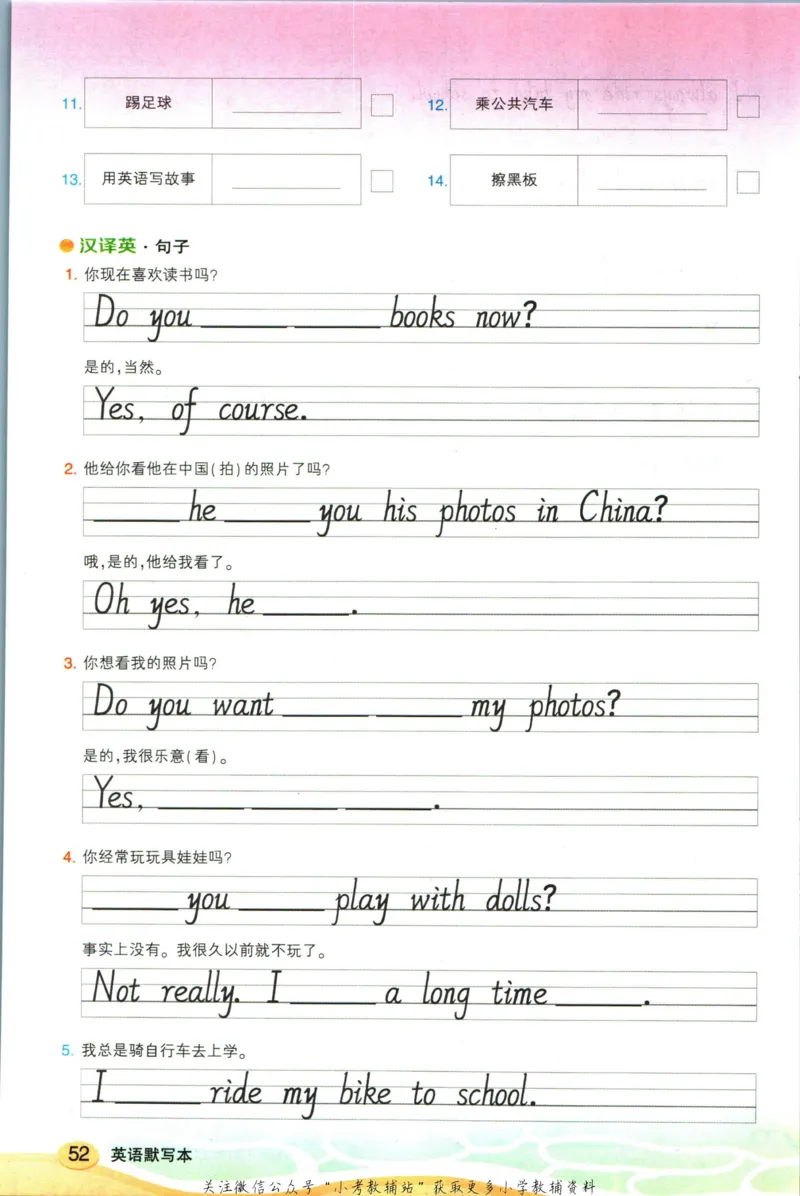 11. 踢足球 ________ □ 12. 乘公共汽车 ________ □
13. 用英语写故事 ________ □ 14. 擦黑板 ________ □
汉译英·句子
1. 你现在喜欢读书吗?
Do you ______ ______ books now?
是的,当然。
Yes, of course.
2. 他给你看他在中国(拍)的照片了吗?
______ he ______ you his photos in China?
哦,是的,他给我看了。
Oh yes, he ______.
3. 你想看我的照片吗?
Do you want ______ ______ my photos?
是的,我很乐意(看)。
Yes, ______ ______ ______.
4. 你经常玩玩具娃娃吗?
______ you ______ play with dolls?
事实上没有。我很久以前就不玩了。
Not really. I ______ a long time ______.
5. 我总是骑自行车去上学。
I ______ ride my bike to school.
52 英语默写本
关注微信公众号“小考教辅站”获取更多小学教辅资料